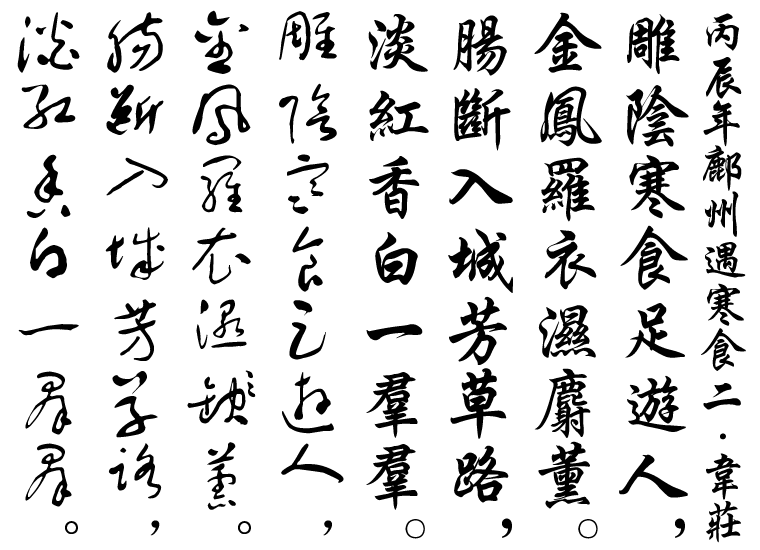 丙辰年鄜州遇寒食二·韋莊
雕陰寒食足遊人,
金鳳羅衣濕麝薰。
腸斷入城芳草路,
淡紅香白一羣羣。
雕陰寒食足遊人,
金鳳羅衣濕麝薰。
腸斷入城芳草路,
淡紅香白一羣羣。